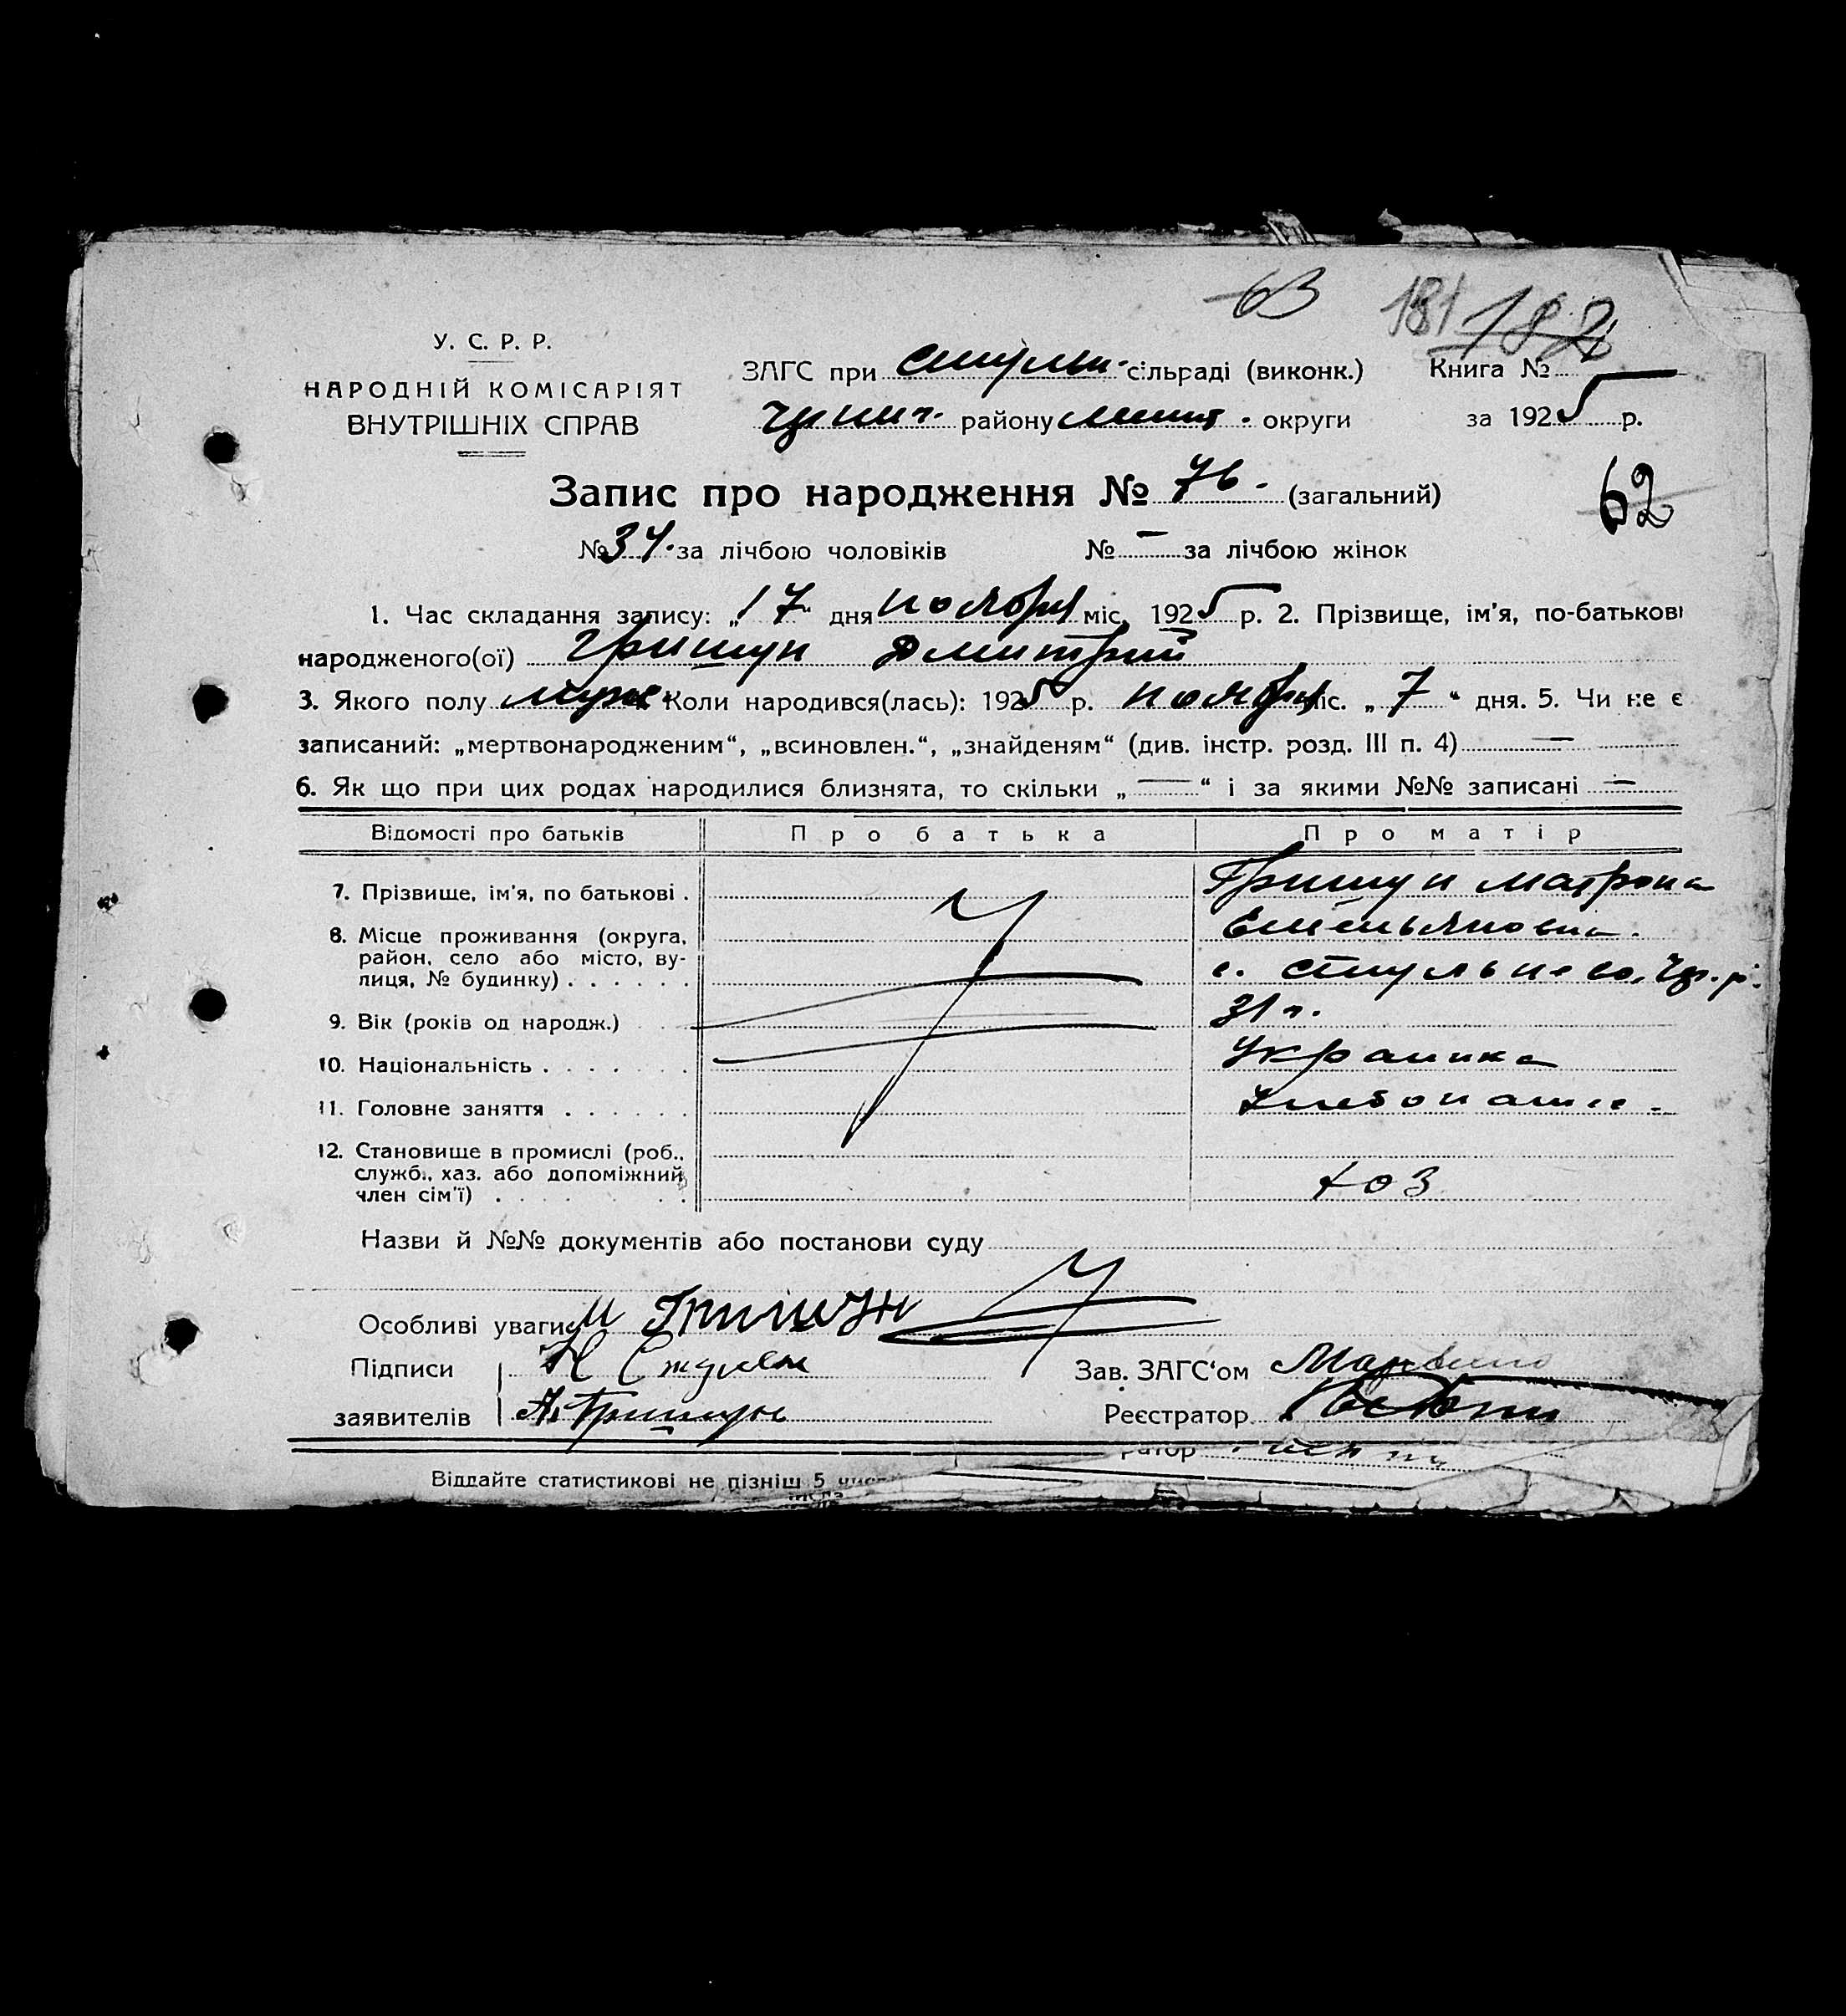 63 181 182
У. С. Р. Р.
НАРОДНІЙ КОМІСАРІЯТ
ВНУТРІШНІХ СПРАВ
ЗАГС при Стульн. сільраді (виконк.) Книга №
району округи за 1925 р.
Запис про народження № 76. (загальний)
62
№ 34. за лічбою чоловіків № — за лічбою жінок
1. Час складання запису: „17“ дня ноября міс. 1925 р. 2. Прізвище, ім'я, по-батькові
народженого(ої) Гришун Дмитрий
3. Якого полу муж Коли народився(лась): 1925 р. ноября міс. „7“ дня. 5. Чи не є
записаний: „мертвонародженим“, „всиновлен.“, „знайденям“ (див. інстр. розд. III п. 4) —
6. Як що при цих родах народилися близнята, то скільки „—“ і за якими №№ записані —
Відомості про батьків Про батька Про матір
7. Прізвище, ім'я, по батькові . Гришун Матрона
Емельяновна.
8. Місце проживання (округа,
район, село або місто, ву-
лиця, № будинку) . . . . . . с. Стульнево, Чр. р.
9. Вік (років од народж.) . . 31 г.
10. Національність . . . . . . . Украинка
11. Головне заняття . . . . . . Хлебопаш.
12. Становище в промислі (роб.,
служб., хаз. або допоміжний
член сім'ї) . . . . . . . хоз
Назви й №№ документів або постанови суду
Особливі уваги М Гришун
Підписи Зав. ЗАГС'ом
заявителів А. Гришун Реєстратор
ратор
Віддайте статистикові не пізніш 5